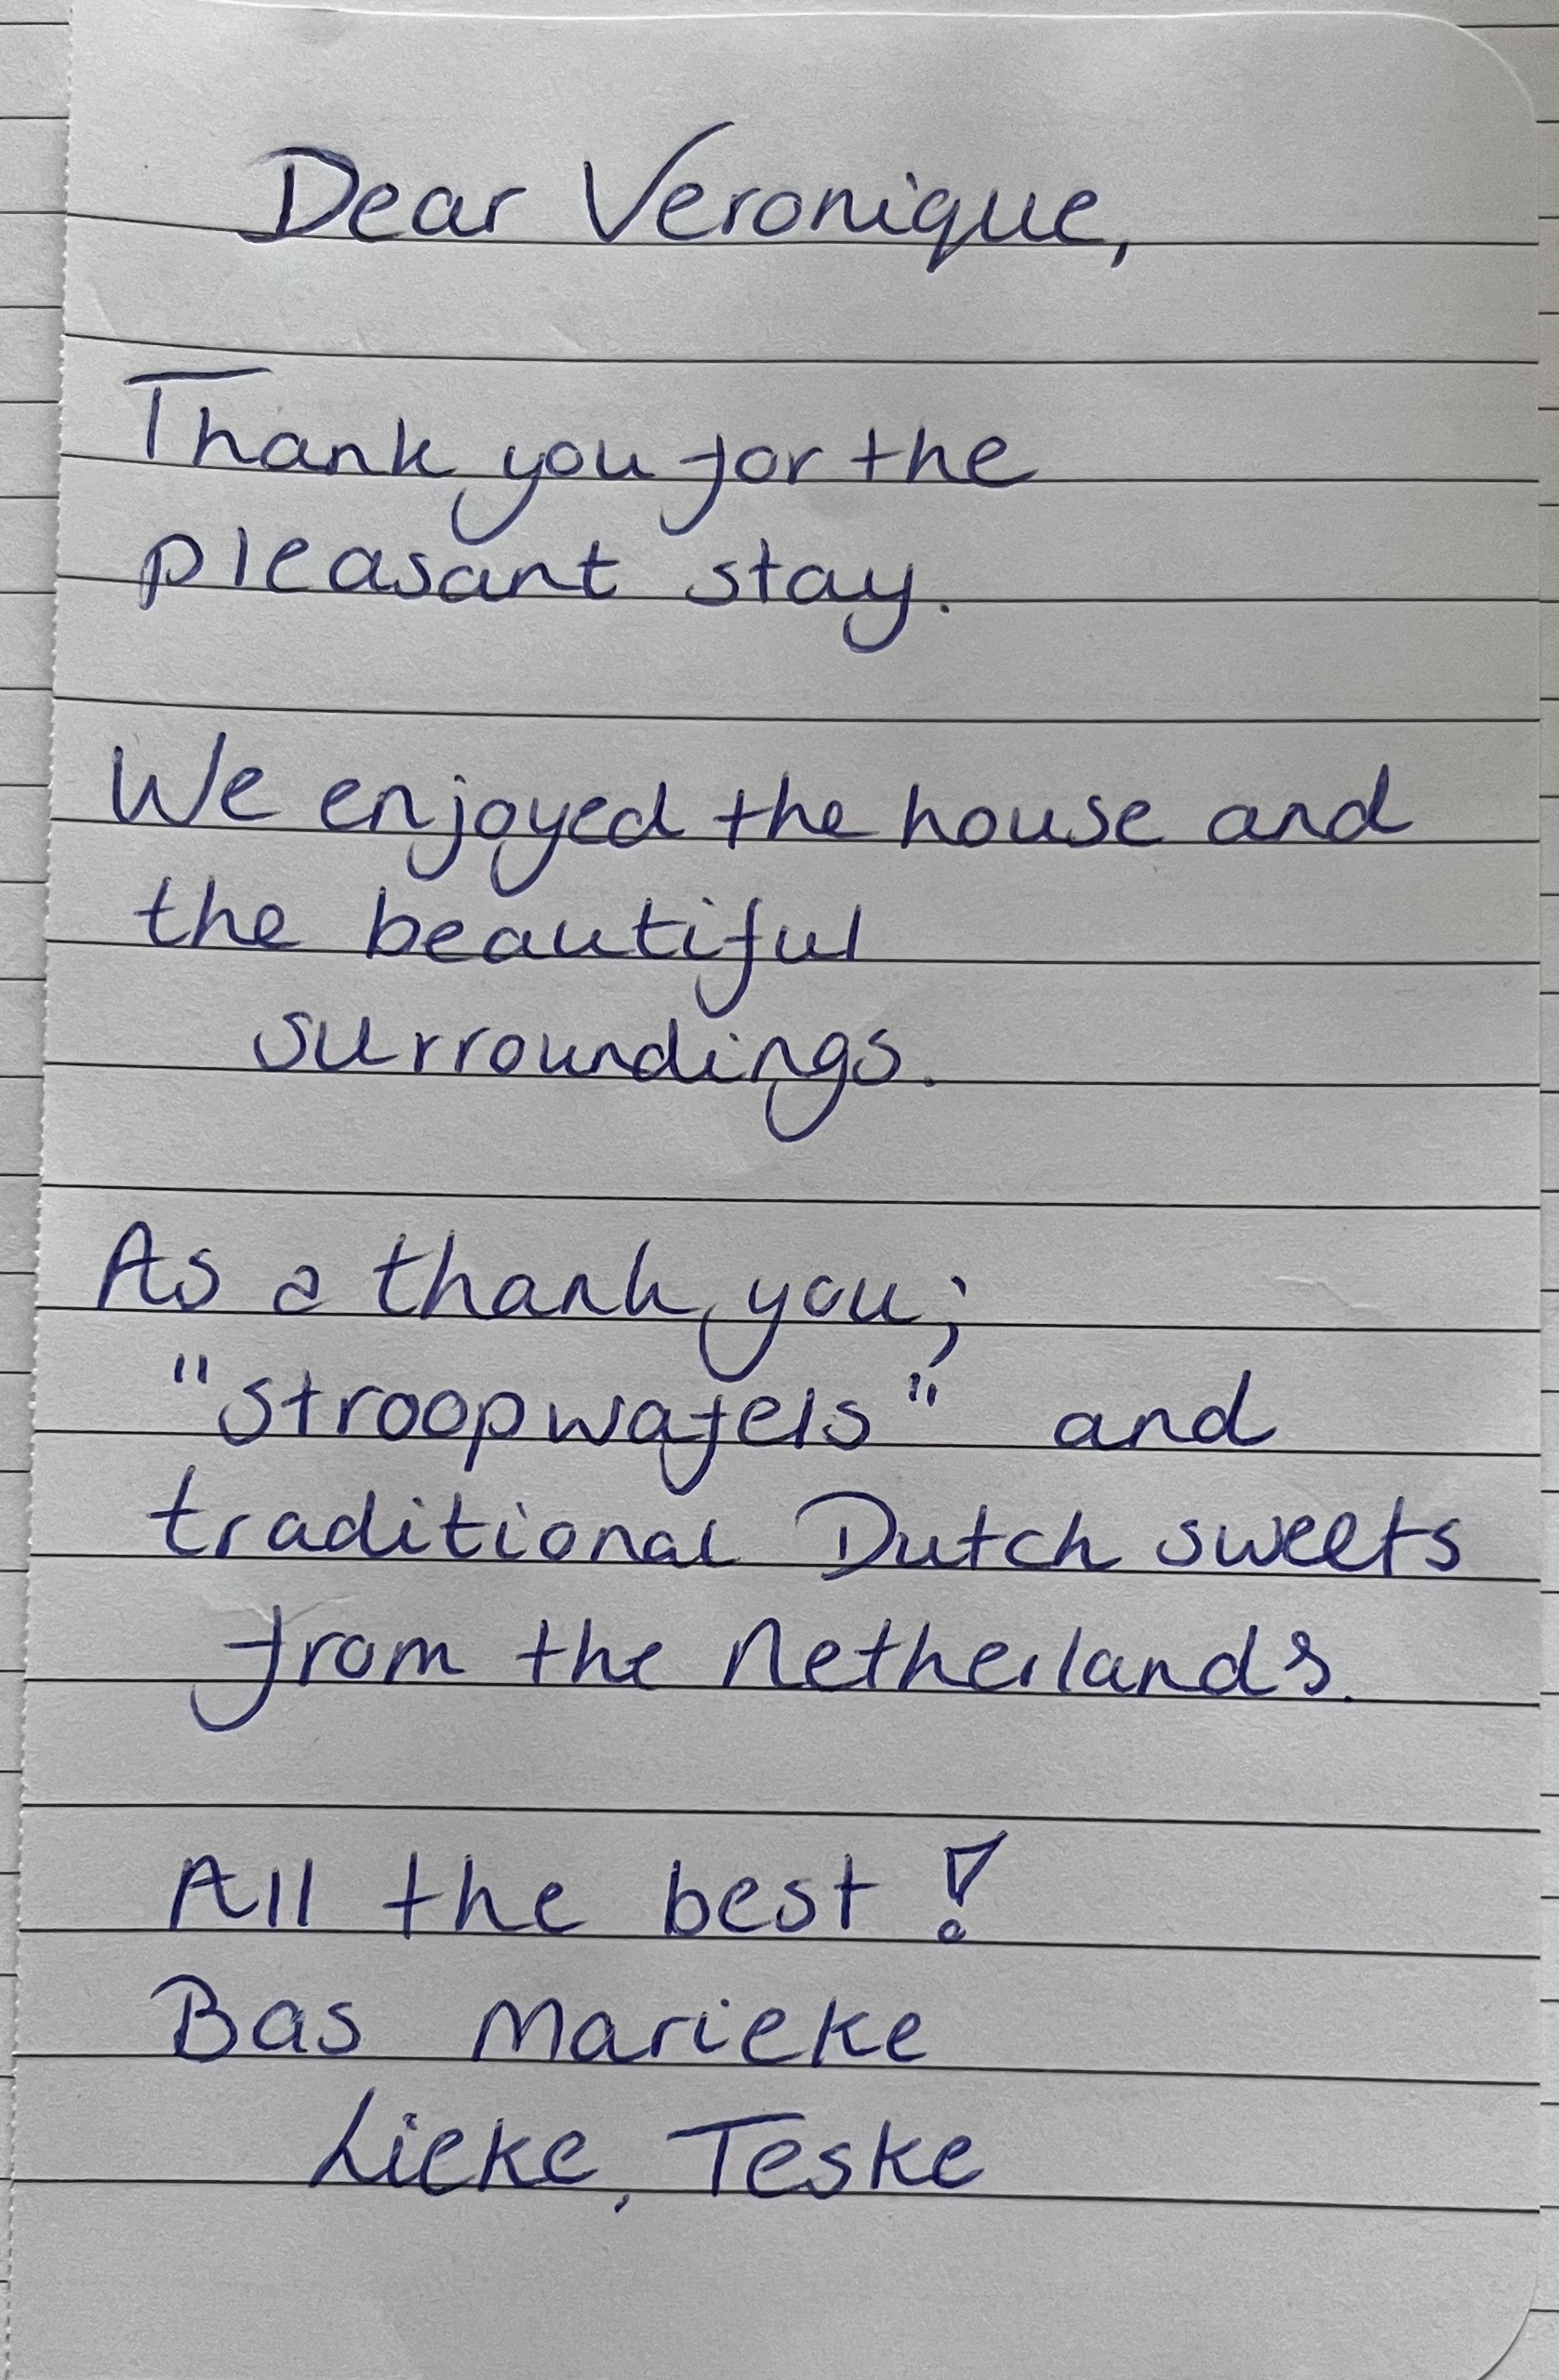 Dear Veronique,
Thank you for the
pleasant stay.
We enjoyed the house and
the beautiful
surroundings.
As a thank you;
"stroopwafels" and
traditional Dutch sweets
from the Netherlands.
All the best!
Bas Marieke
Lieke, Teske